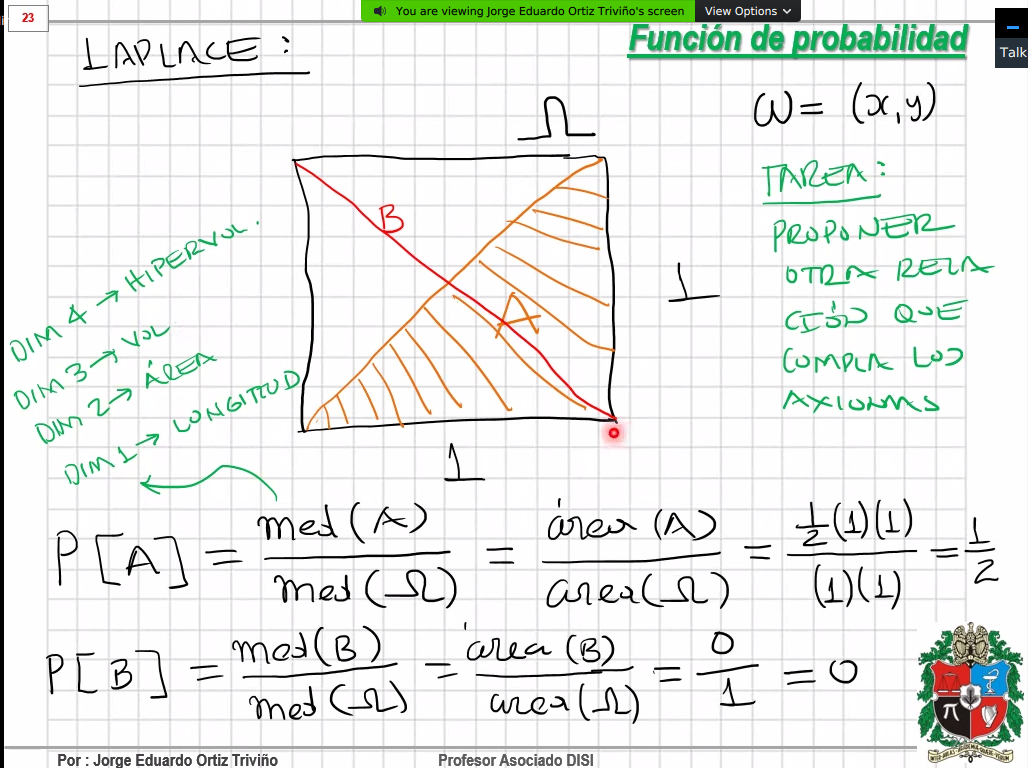 23
You are viewing Jorge Eduardo Ortiz Triviño's screen
View Options
Talk
Función de probabilidad
LAPLACE:
Ω
ω = (x,y)
TAREA:
PROPONER
OTRA RELA
CIÓN QUE
CUMPLA LOS
AXIOMAS
B
A
1
1
DIM 4 → HIPERVOL.
DIM 3 → VOL
DIM 2 → ÁREA
DIM 1 → LONGITUD
P[A] = med(A)/med(Ω) = área(A)/área(Ω) = ½(1)(1)/(1)(1) = 1/2
P[B] = med(B)/med(Ω) = área(B)/área(Ω) = 0/1 = 0
π
Por : Jorge Eduardo Ortiz Triviño
Profesor Asociado DISI